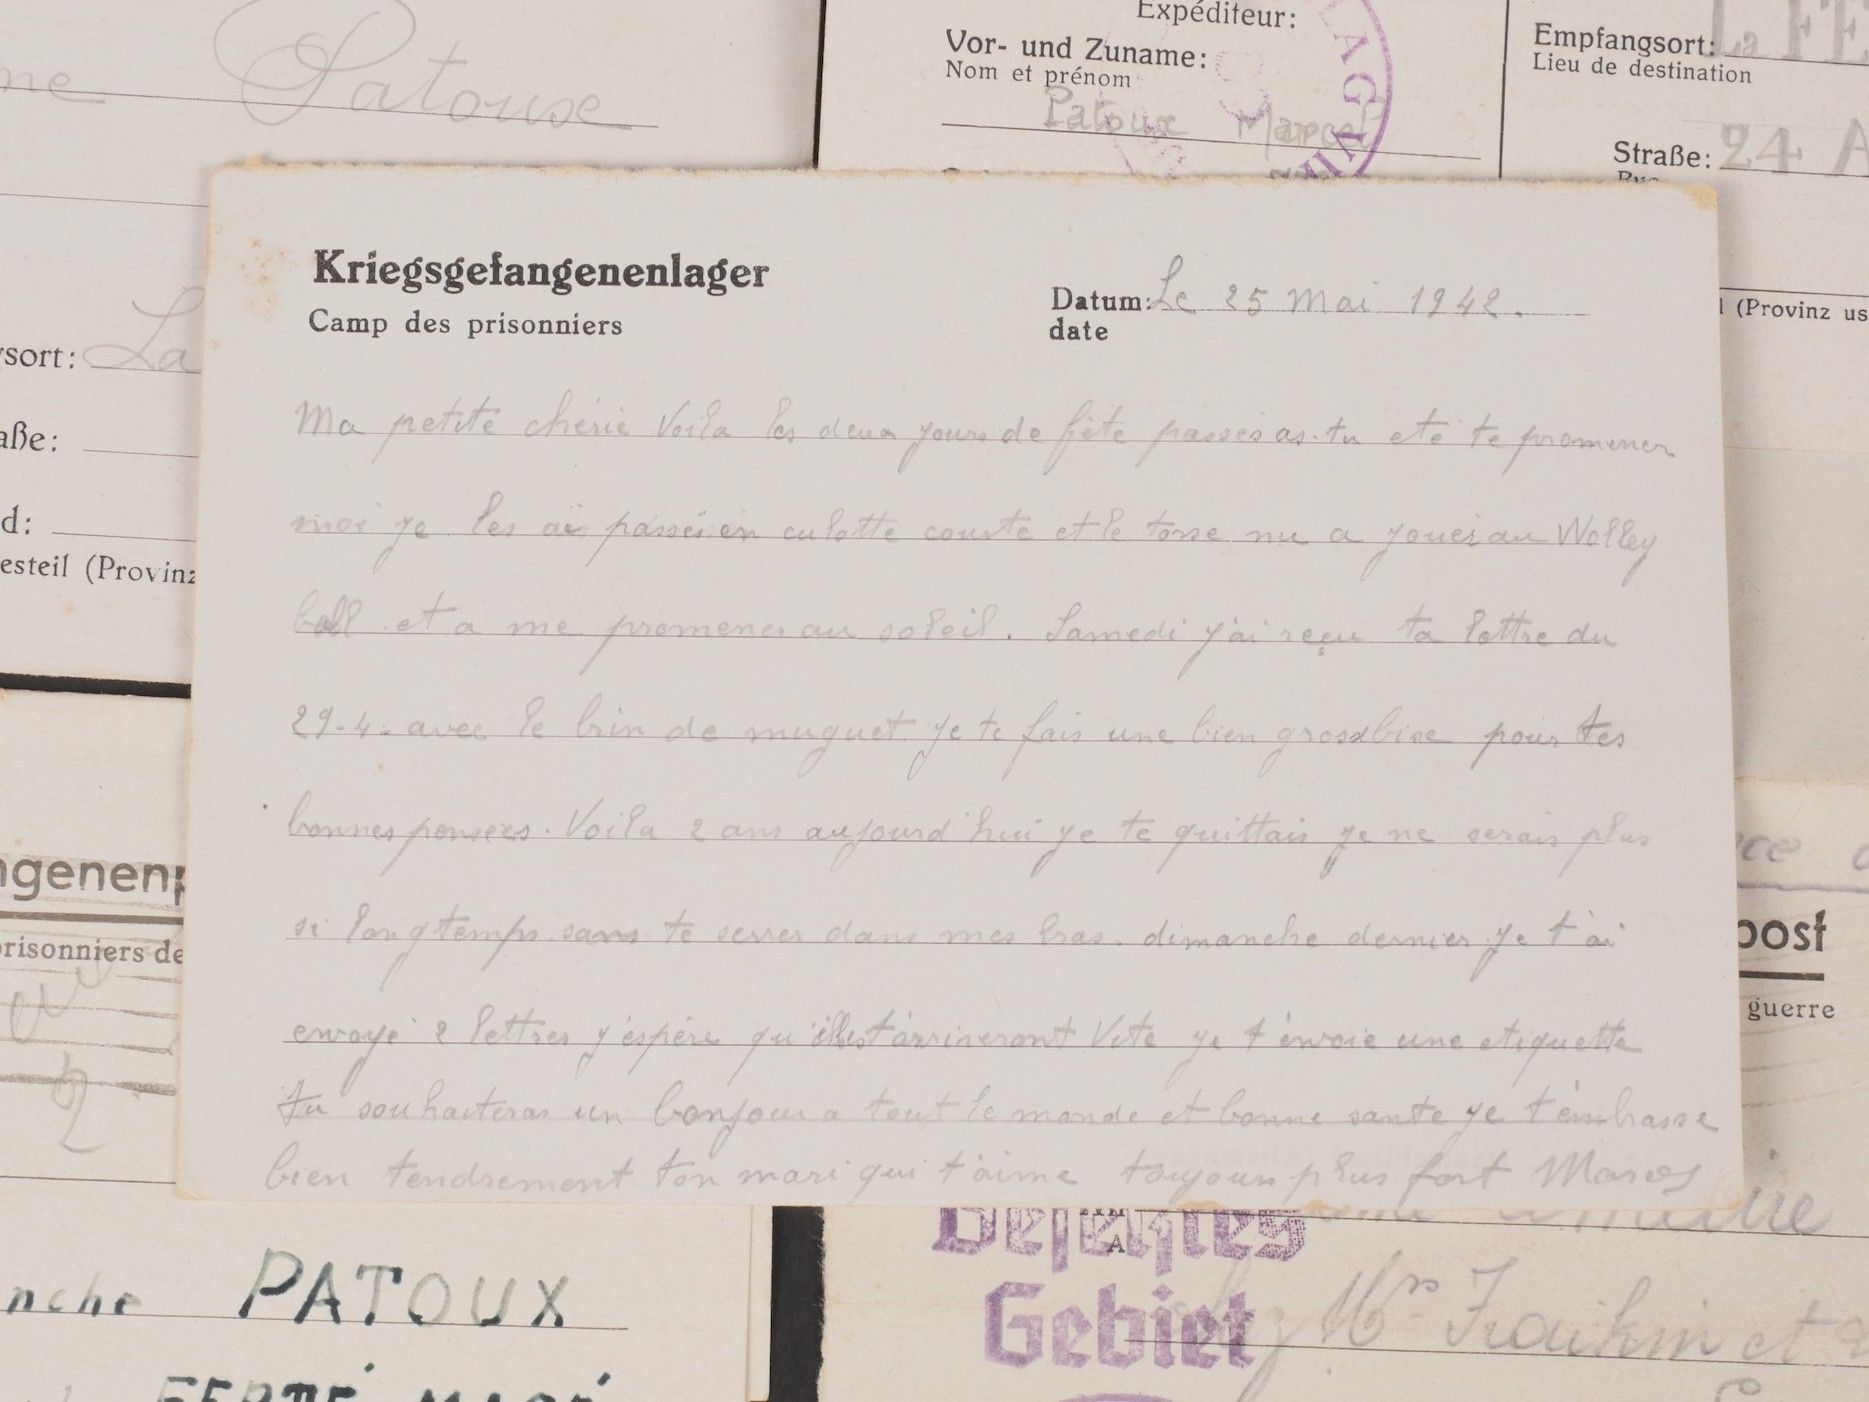 me Patoux
Expéditeur:
Vor- und Zuname:
Nom et prénom
Patoux Marcel
LAG VII
Empfangsort: La FE
Lieu de destination
Straße: 24 A
Rue
Kriegsgefangenenlager
Camp des prisonniers
Datum: Le 25 Mai 1942.
date
Ma petite chérie Voila les deux jours de fête passés as-tu eté te promener
moi je les ai passés en culotte courte et le torse nu a jouer au Wolley
ball et a me promener au soleil. Samedi j'ai reçu ta lettre du
29-4. avec le brin de muguet je te fais une bien grosse bise pour tes
bonnes pensées. Voila 2 ans aujourd'hui je te quittais je ne serais plus
si longtemps sans te serrer dans mes bras. dimanche dernier je t'ai
envoyé 2 lettres j'éspère qu'illes t'arriveront Vite je t'envoie une etiquette
tu souhaiteras un bonjour a tout le monde et bonne sante je t'embrasse
bien tendrement ton mari qui t'aime toujours plus fort Marcel
gsort: La
aße:
d:
esteil (Provinz
l (Provinz us
ngenenp
prisonniers de
nce
post
guerre
nche PATOUX
FERTÉ MACÉ
Besetztes
Gebiet
A
Mr
et